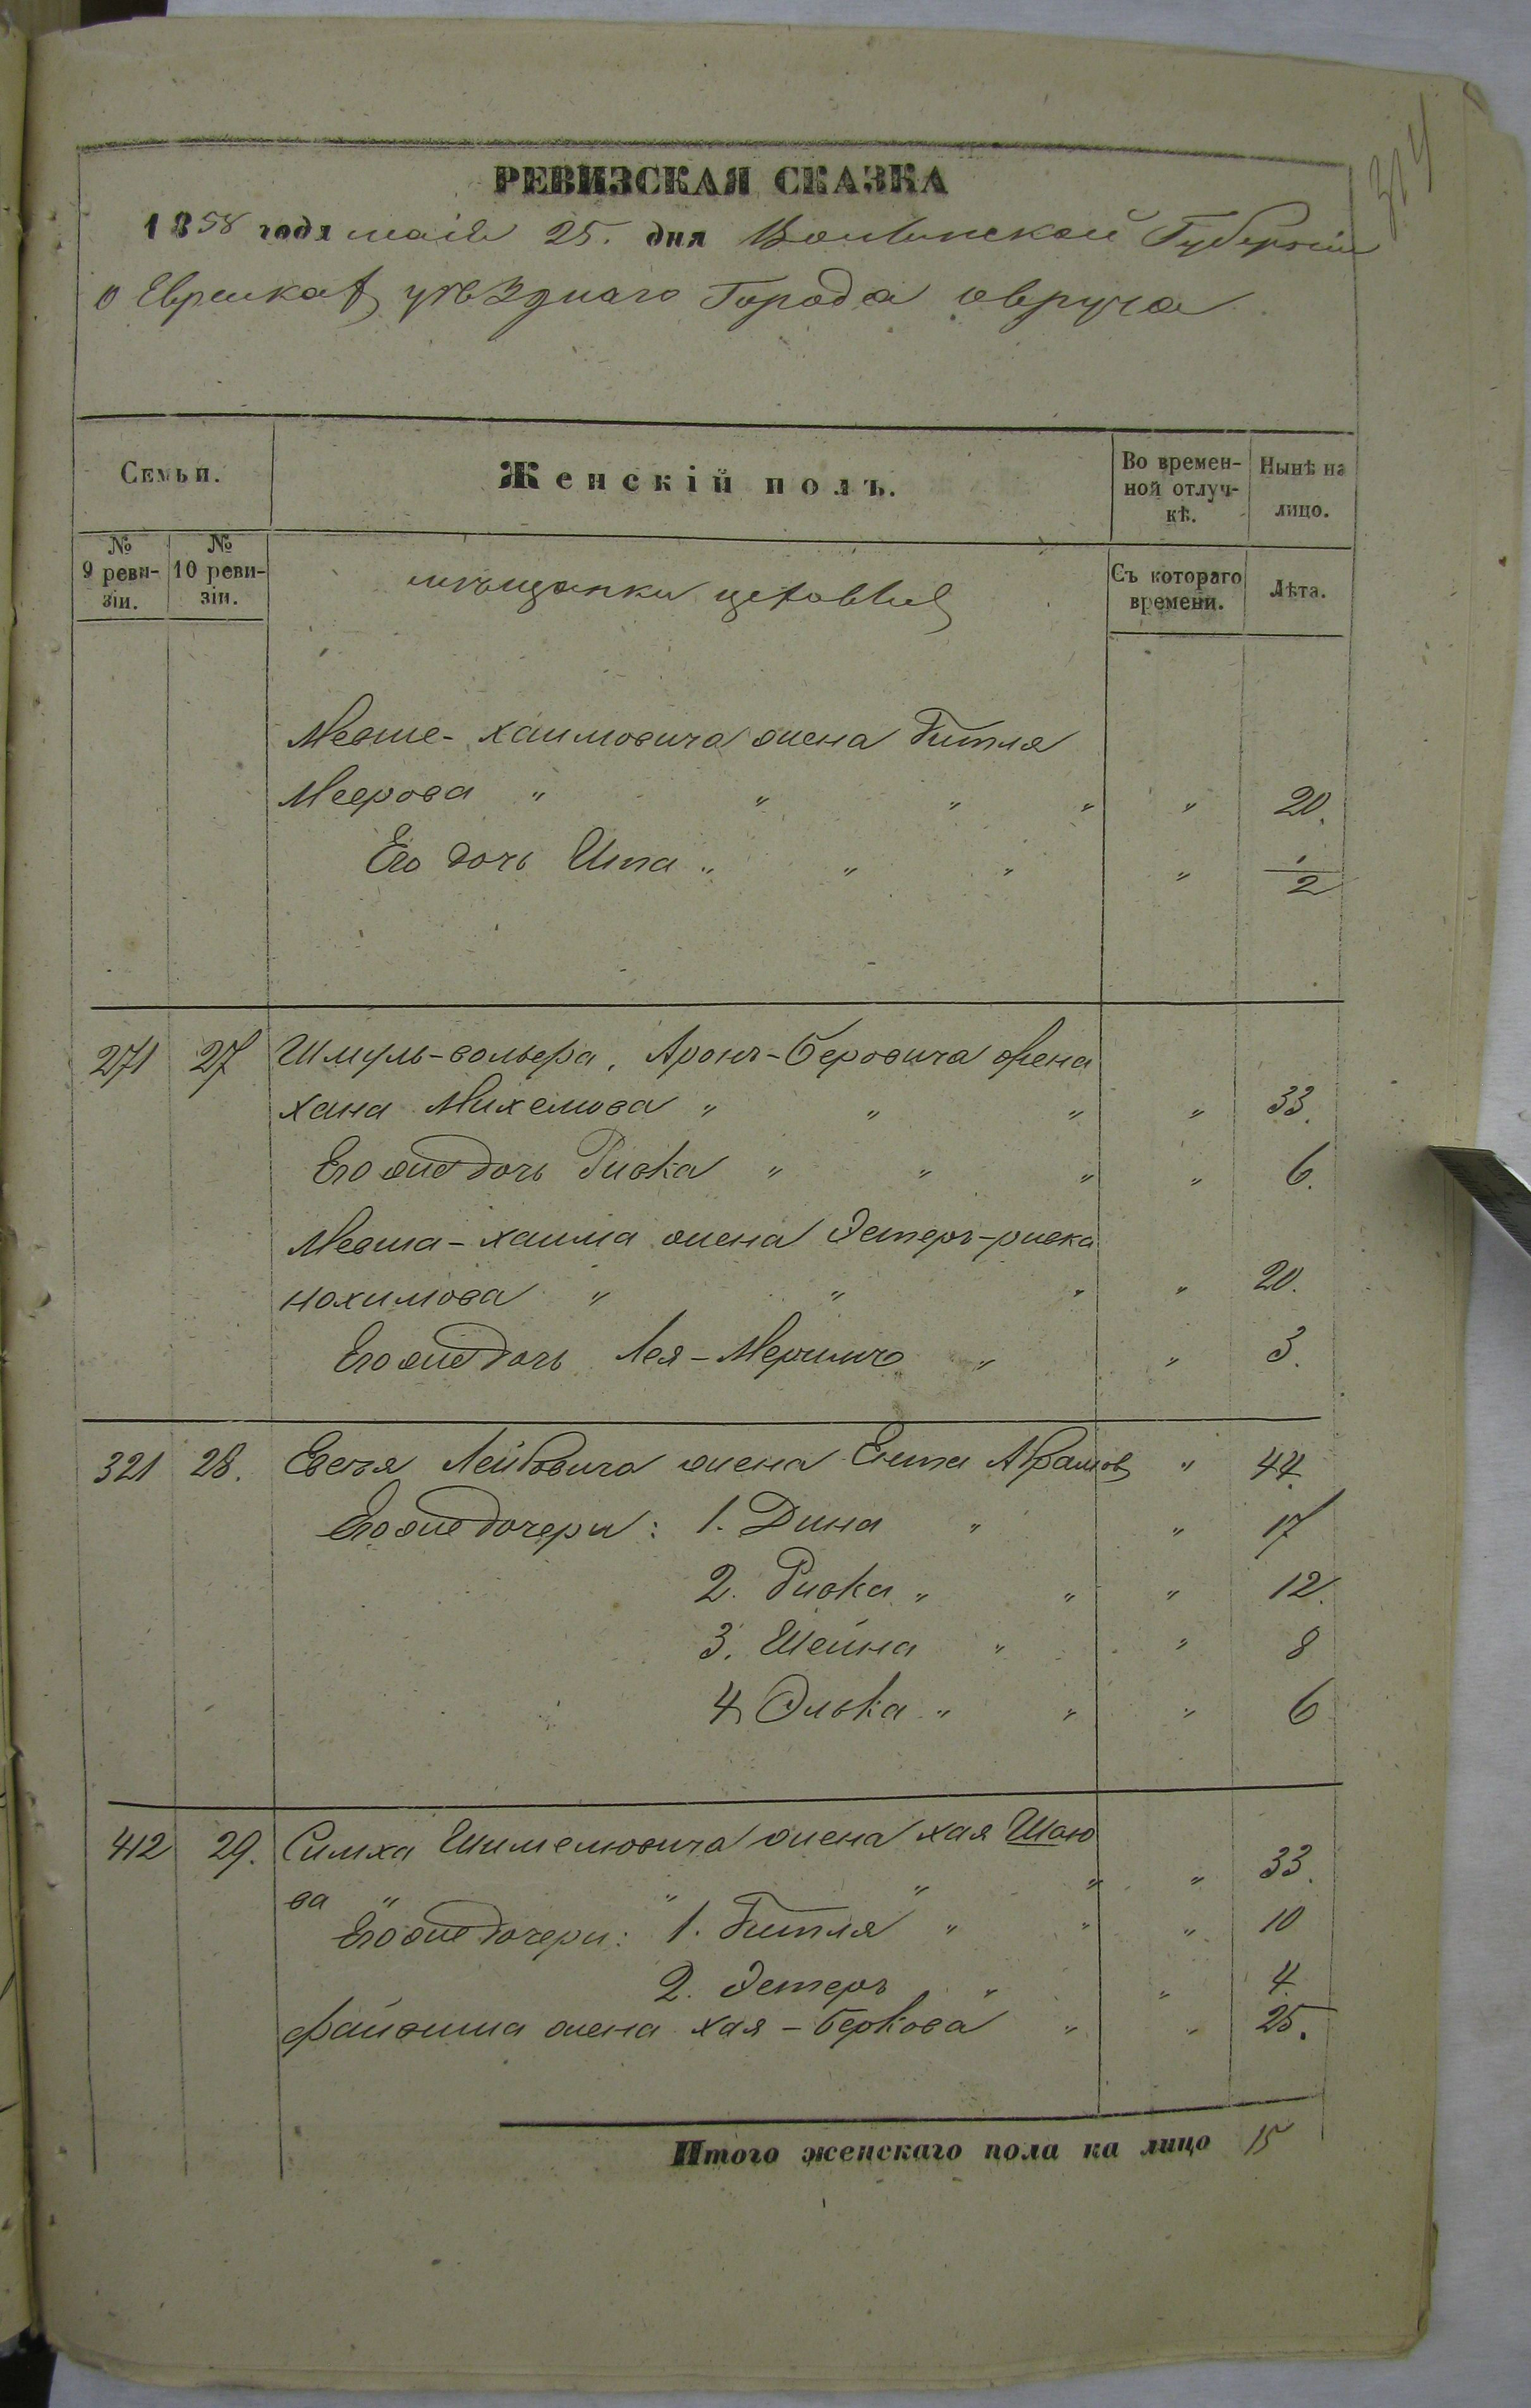 314
РЕВИЗСКАЯ СКАЗКА
1858 года маія 25. дня Волынской Губерніи
о Евреикахъ уѣзднаго Города овруча
Семьи.
Женскій полъ.
Во времен-
ной отлуч-
кѣ.
Нынѣ на
лицо.
№
9 реви-
зіи.
№
10 реви-
зіи.
мѣщанки цеховыя
Съ котораго
времени.
Лѣта.
Мовше-хаимовича жена Гитля
Меерова " " " " " 20.
Его дочь Ита " " " " 1/2
271 27 Шмуль-вольфа, Аронъ-Беровича жена
хана Михелюва " " " " 33.
Его же дочь Ривка " " " " 6.
Мовша-хаима жена Эстеръ-ривка
нохимова " " " " 20.
Его же дочь Лея- " " 3.
321 28. Евеля Лейбовича жена Ента Абрамов " 44.
Его же дочери: 1. Дина " " 17
2. Ривка " " " 12.
3. Шейна " " 8
4 Элька " " " 6
412 29. Симха Шимелиовича жена хая Шаю
ва " " " " " 33.
Его же дочери: 1. Гитля " " " 10
2. Эстеръ " " 4.
файвиша жена хая-беркова " " 25.
Итого женскаго пола на лицо 15